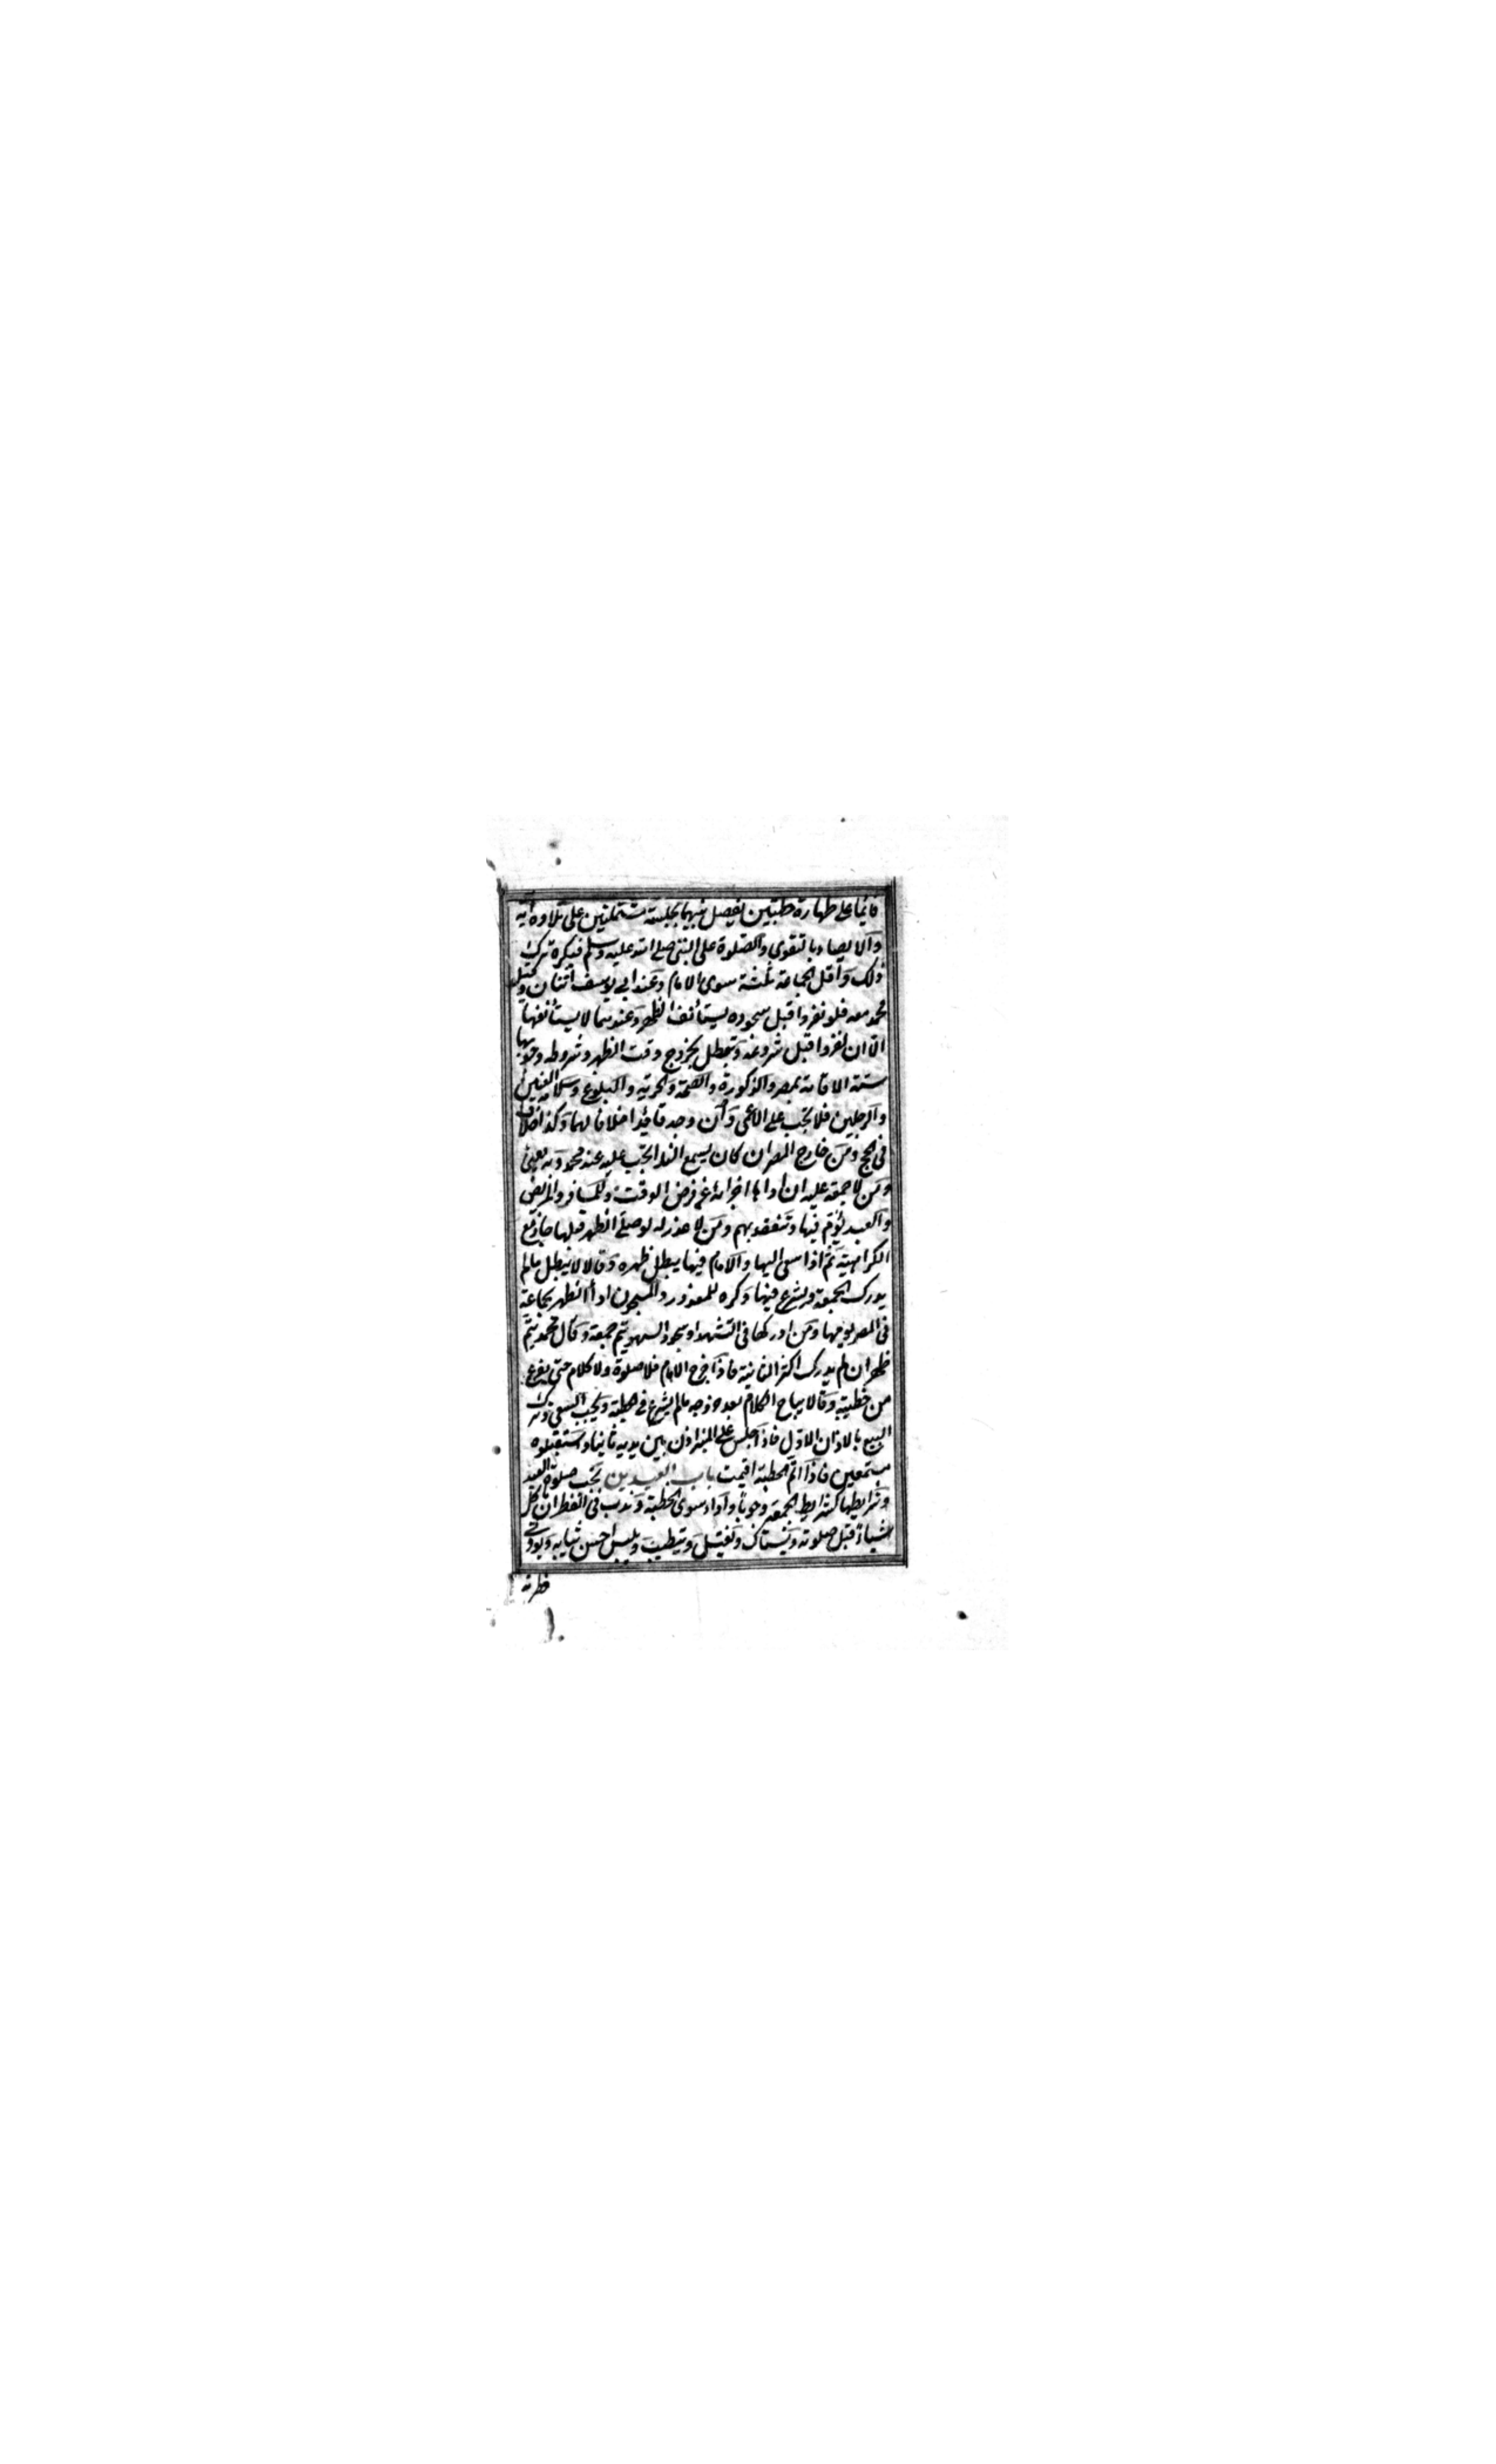 قائما على طهارة خطبتين يفصل بينهما بجلسة مشتملتين على تلاوة آية
والايصاء بالتقوى والصلوة على النبى صلى الله عليه وسلم فيكره ترك
ذلك واقل الجماعة ثلثة سوى الامام وعند ابى يوسف اثنان وقيل
محمد معه فلو نفروا قبل سجوده يستأنف الظهر وعندهما لا يستأنفها
الا ان نفروا قبل شروعه وتبطل بخروج وقت الظهر وشروط وجوبها
ستة الاقامة بمصر والذكورة والصحة والحرية والبلوغ وسلامة العينين
والرجلين فلا تجب على الاعمى وان وجد قائدا خلافا لهما وكذا الخلاف
فى الحج ومن خارج المصر ان كان يسمع النداء تجب عليه عند محمد وبه يفتى
ومن لا جمعة عليه ان اداها اجزأته عن فرض الوقت وللمسافر والمريض
والعبد يؤم فيها وتنعقد بهم ومن لا عذر له لو صلى الظهر قبلها جاز مع
الكراهية ثم اذا سعى اليها والامام فيها يبطل ظهره وقالا لا تبطل مالم
يدرك الجمعة ويشرع فيها وكره للمعذور والمسجون اداء الظهر بجماعة
فى المصر يومها ومن ادركها فى التشهد او سجود السهو يتم جمعة وقال محمد يتم
ظهرا ان لم يدرك اكثر الثانية فاذا خرج الامام فلا صلوة ولا كلام حتى يفرغ
من خطبته وقالا يباح الكلام بعد خروجه مالم يشرع فى خطبة ويجب السعى وترك
البيع بالاذان الاول فاذا جلس على المنبر اذن بين يديه ثانيا واستقبلوه
مستمعين فاذا اتم الخطبة اقيمت باب العيدين تجب صلوة العيد
وشرايطها كشرايط الجمعة وجوبا واداء سوى الخطبة وندب فى الفطر ان يأكل
شيأ قبل صلوته ويستاك ويغتسل ويتطيب ويلبس احسن ثيابه ويؤدى
فطرته